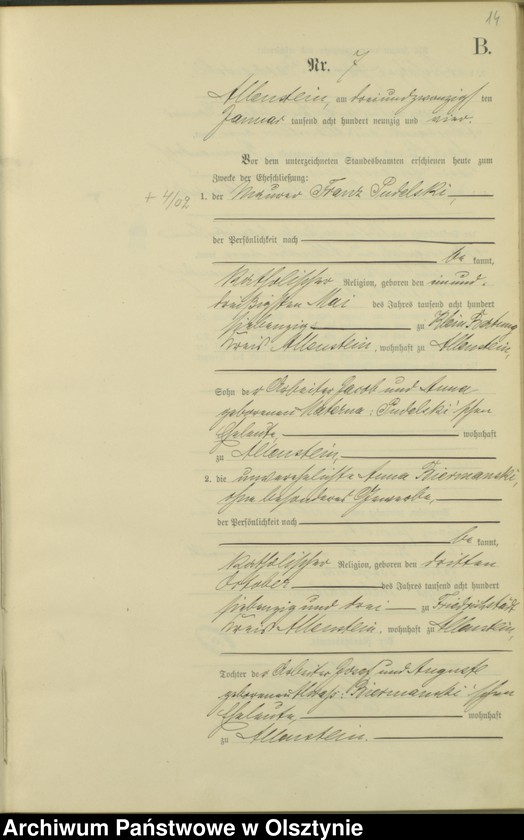 14
B.
Nr. 7
Allenstein, am dreiundzwanzigsten
Januar tausend acht hundert neunzig und vier.
Vor dem unterzeichneten Standesbeamten erschienen heute zum
Zwecke der Eheschließung:
+ 4/02
1. der Maurer Franz Pudelski,
der Persönlichkeit nach
be kannt,
katholischer Religion, geboren den einund-
dreißigsten Mai des Jahres tausend acht hundert
siebenzig zu Klein
Kreis Allenstein, wohnhaft zu Allenstein,
Sohn der Arbeiter Jacob und Anna
geborenen Materna, Pudelski'schen
Eheleute, wohnhaft
zu Allenstein,
2. die unverehelichte Anna Biermanski,
ohne besonderes Gewerbe,
der Persönlichkeit nach
be kannt,
katholischer Religion, geboren den dritten
October des Jahres tausend acht hundert
siebenzig und drei zu Friedrichstädt
Kreis Allenstein, wohnhaft zu Allenstein,
Tochter der Arbeiter Josef und Auguste
geborenen Biermanski'schen
Eheleute, wohnhaft
zu Allenstein.
Archiwum Państwowe w Olsztynie